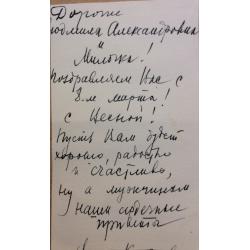 Дорогие
Людмила Александровна
и
Милочка!
Поздравляем Вас с
8-м марта!
С Весной!
Пусть Вам будет
хорошо, радостно
и счастливо,
ну а мужчинам
наши сердечные
приветы